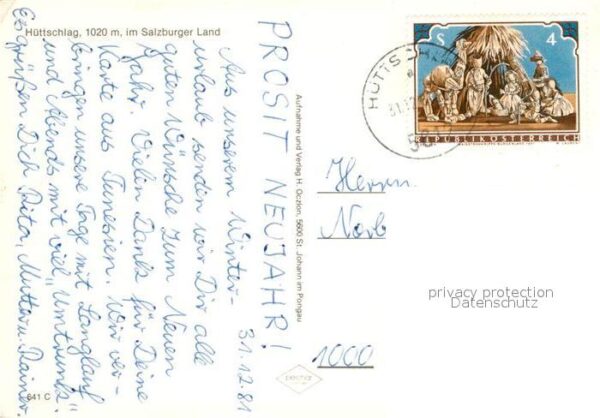 Hüttschlag, 1020 m, im Salzburger Land
PROSIT NEUJAHR!
31.12.81
Aus unserem Winter-
urlaub senden wir Dir alle
guten Wünsche zum Neuen
Jahr. Vielen Dank für Deine
Karte aus Tunesien. Wir ver-
bringen unsere Tage mit Langlauf
und Abends mit viel „Umtrunk“.
Es grüßen Dich Rita, Mutter u. Rainer.
641 C
Aufnahme und Verlag H. Oczlon, 5600 St. Johann im Pongau
S 4
REPUBLIK ÖSTERREICH
HÜTTSCHLAG
31.12
Herrn
Norb
1000
privacy protection
Datenschutz